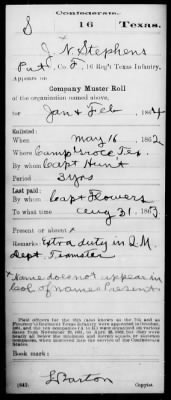 Confederate.
S 16 Texas.
J. N. Stephens
Pvt, Co. F, 16 Reg't Texas Infantry.
Appears on
Company Muster Roll
of the organization named above,
for Jan & Feb, 1864
Enlisted:
When May 16, 1862
Where Camp Groce Tex.
By whom Capt Hunt
Period 3 yrs
Last paid:
By whom Capt Flowers
To what time Aug 31, 1863.
Present or absent x
Remarks: Extra duty in Q.M.
Dept. Teamster
x Name does not appear in
Col of names Present
Book mark:
(642) L Barton
Copyist.